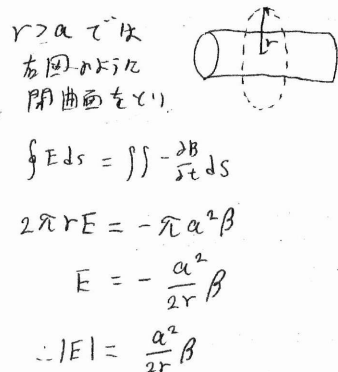 r>a では
右図のように
閉曲面をとり
r
∮Eds = ∬ -∂B/∂t dS
2πrE = -πa²β
E = - a²/2r β
∴|E| = a²/2r β